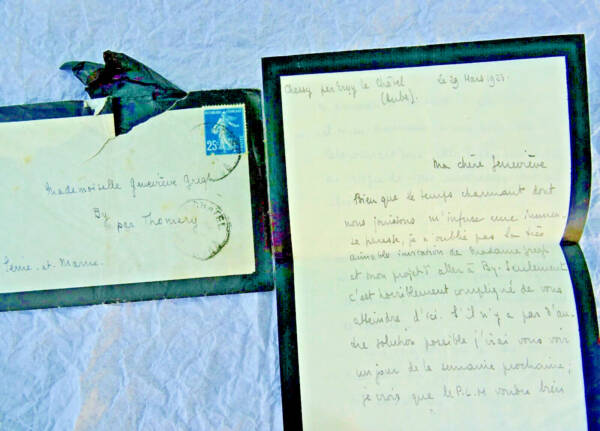 Mademoiselle Geneviève Gregh
By
par Thomery
Seine-et-Marne
25
Chessy par Ervy le Châtel
(Aube).
Le 29 Mars 1923.
Ma chère Geneviève
Bien que le temps charmant dont
nous jouissons m'infuse une immen-
se paresse, je n'oublie pas la très
aimable invitation de Madame Gregh
et mon projet d'aller à By. Seulement
c'est horriblement compliqué de vous
atteindre d'ici. S'il n'y a pas d'au-
tre solution possible j'irai vous voir
un jour de la semaine prochaine;
je crois que le P.L.M voudra bien